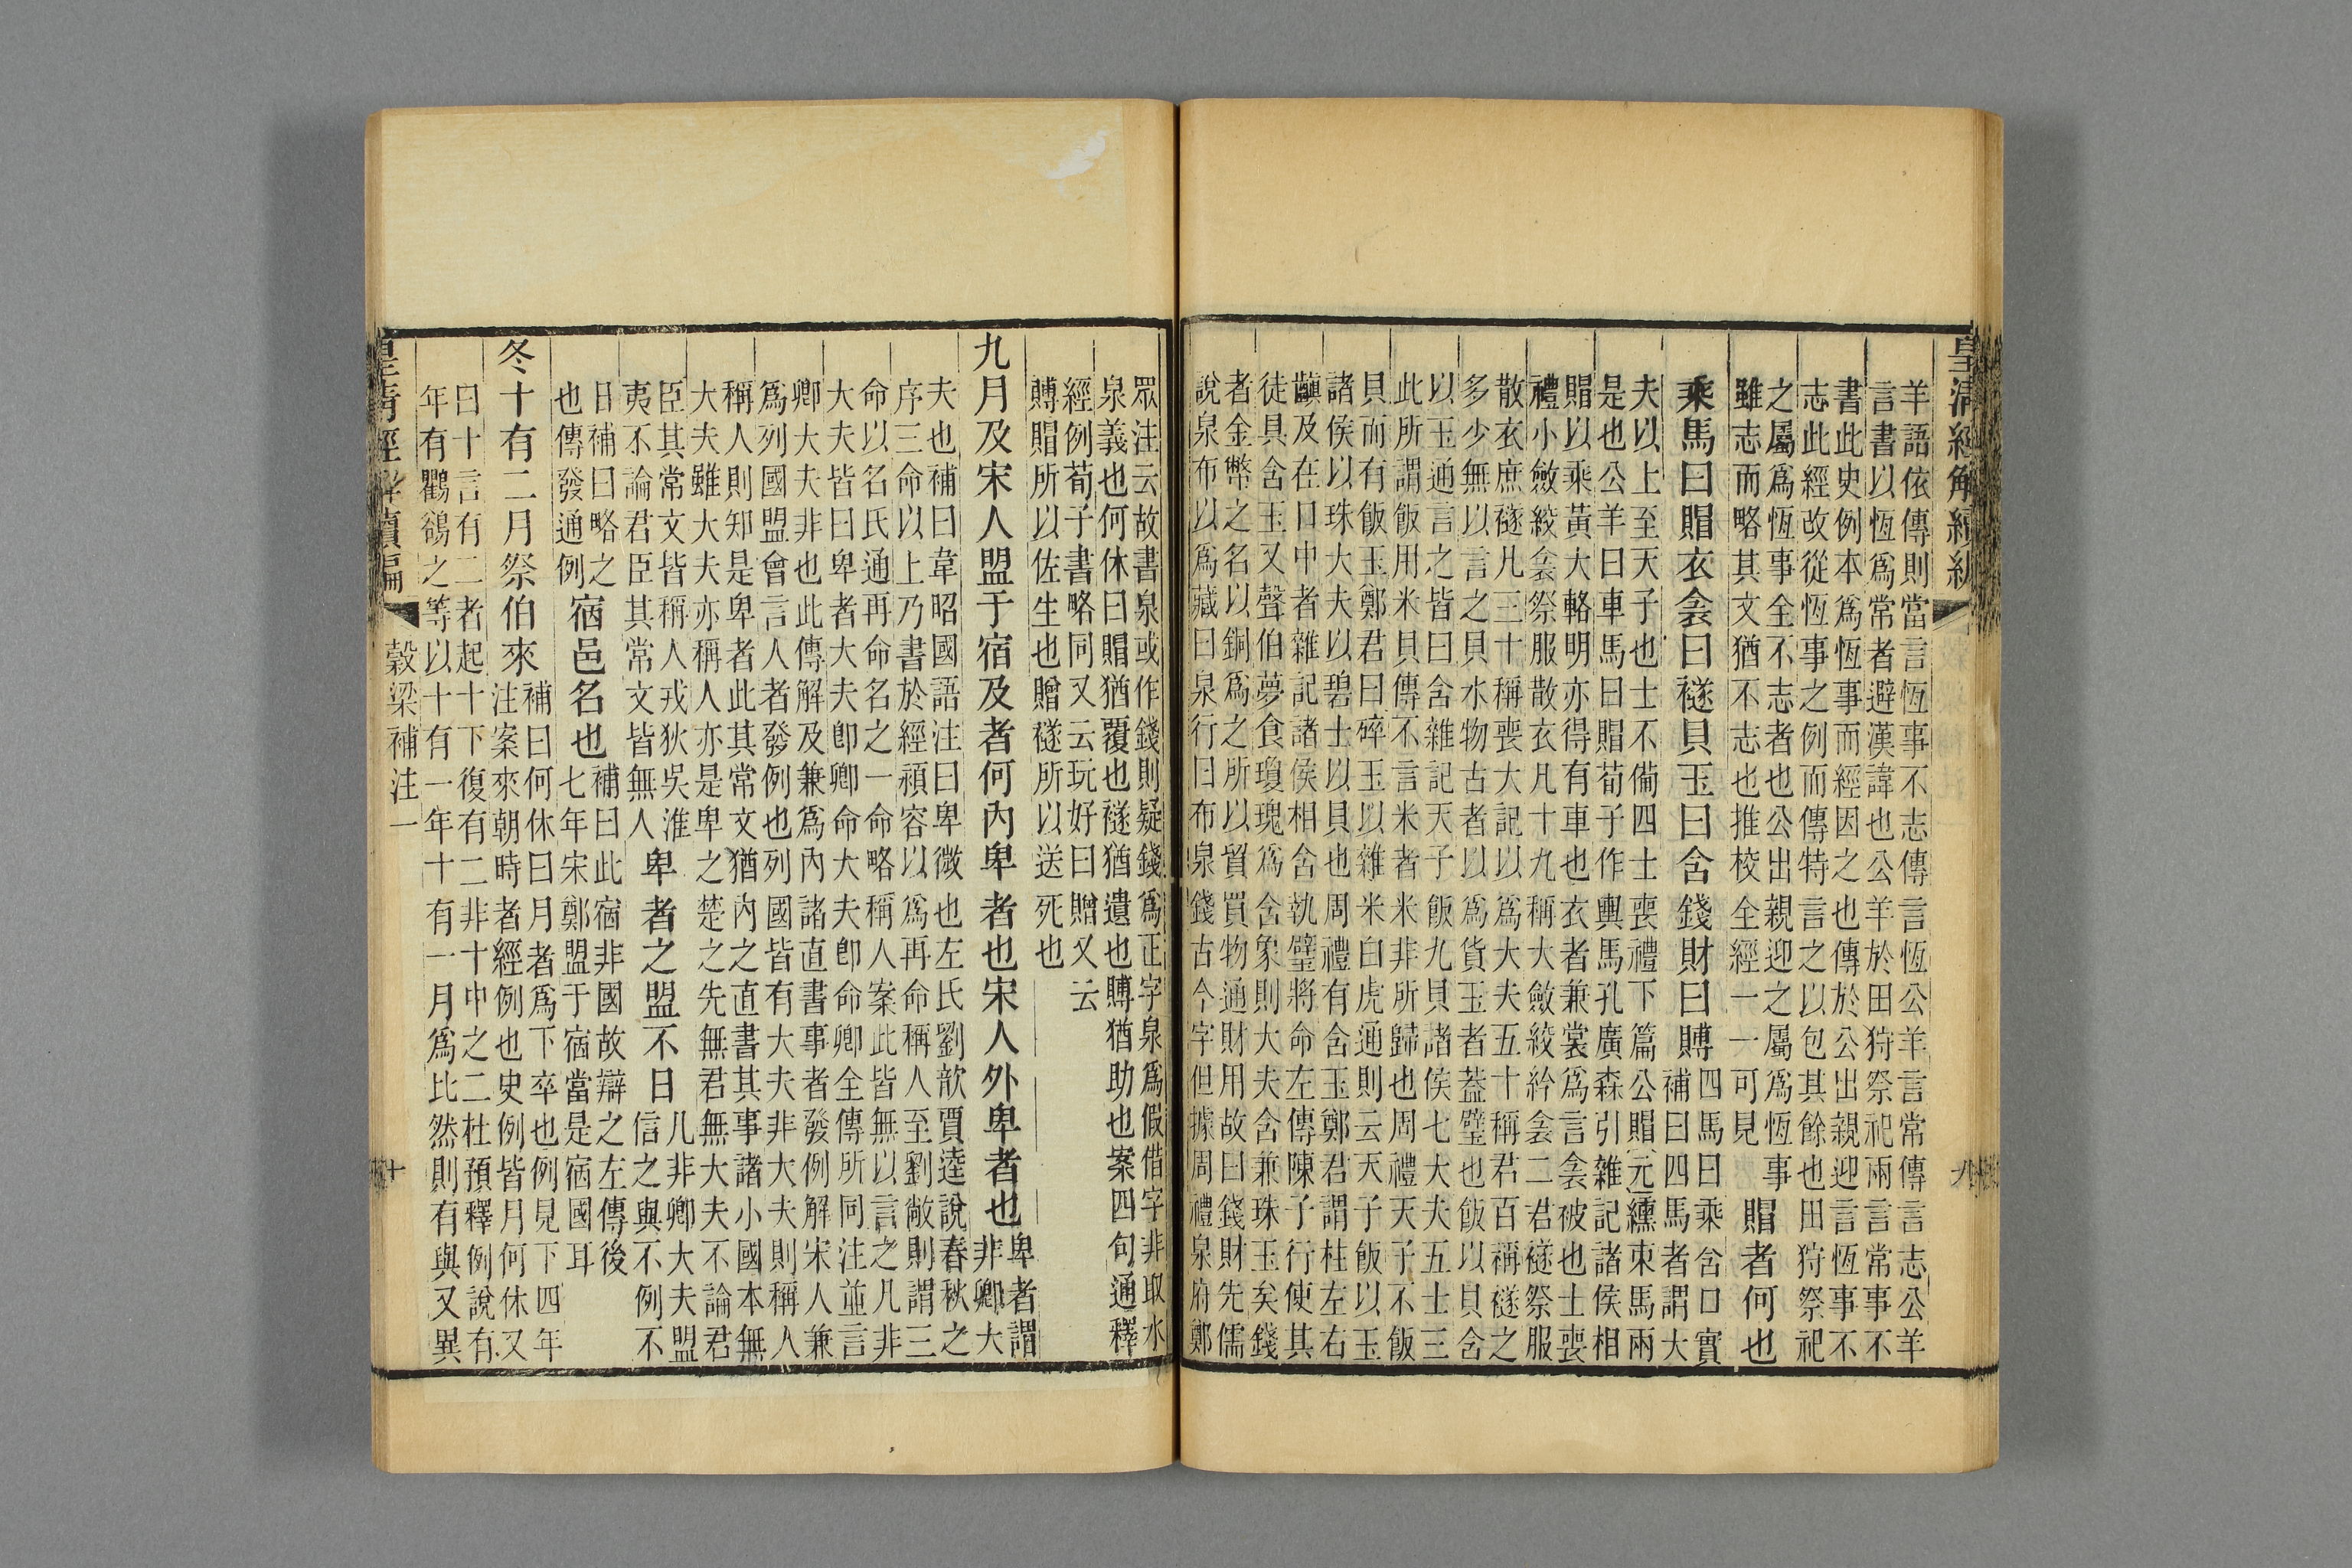 皇清經解續編
羊語依傳則當言恆事不志傳言恆公羊言常傳言志公羊
言書以恆爲常者避漢諱也公羊於田狩祭祀兩言常事不
書此史例本爲恆事而經因之也傳於公出親迎言恆事不
志此經改從恆事之例而傳特言之以包其餘也田狩祭祀
之屬爲恆事全不志者也公出親迎之屬爲恆事
雖志而略其文猶不志也推校全經一一可見
賵者何也
乘馬曰賵衣衾曰襚貝玉曰含錢財曰賻
四馬曰乘含口實
補曰四馬者謂大
夫以上至天子也士不備四士喪禮下篇公賵元纁束馬兩
是也公羊曰車馬曰賵荀子作輿馬孔廣森引雜記諸侯相
賵以乘黃大輅明亦得有車也衣者兼裳爲言衾被也士喪
禮小斂絞衾祭服散衣凡十九稱大斂絞紟衾二君襚祭服
散衣庶襚凡三十稱喪大記以爲大夫五十稱君百稱襚之
多少無以言之貝水物古者以爲貨玉者蓋璧也飯以貝含
以玉通言之皆曰含雜記天子飯九貝諸侯七大夫五士三
此所謂飯用米貝傳不言米者米非所歸也周禮天子不飯
貝而有飯玉鄭君曰碎玉以雜米白虎通則云天子飯以玉
諸侯以珠大夫以碧士以貝也周禮有含玉鄭君謂柱左右
齻及在口中者雜記諸侯相含執璧將命左傳陳子行使其
徒具含玉又聲伯夢食瓊瑰爲含象則大夫含兼珠玉矣錢
者金幣之名以銅爲之所以貿買物通財用故曰錢財先儒
說泉布以爲藏曰泉行曰布泉錢古今字但據周禮泉府鄭
九
眾注云故書泉或作錢則疑錢爲正字泉爲假借字非取水
泉義也何休曰賵猶覆也襚猶遺也賻猶助也案四句通釋
經例荀子書略同又云玩好曰贈又云
賻賵所以佐生也贈襚所以送死也
九月及宋人盟于宿及者何內卑者也宋人外卑者也
卑者謂
非卿大
夫也補曰韋昭國語注曰卑微也左氏劉歆賈逵說春秋之
序三命以上乃書於經頴容以爲再命稱人至劉敞則謂三
命以名氏通再命名之一命略稱人案此皆無以言之凡非
大夫皆曰卑者大夫卽卿命大夫卽命卿全傳所同注並言
卿大夫非也此傳解及兼爲內諸直書事者發例解宋人兼
爲列國盟會言人者發例也列國皆有大夫非大夫則稱人
稱人則知是卑者此其常文猶內之直書其事諸小國本無
大夫雖大夫亦稱人亦是卑之楚之先無君無大夫不論君
臣其常文皆稱人戎狄吳淮
夷不論君臣其常文皆無人
卑者之盟不日
凡非卿大夫盟
信之與不例不
日補曰略之
也傳發通例
宿邑名也
補曰此宿非國故辯之左傳後
七年宋鄭盟于宿當是宿國耳
冬十有二月祭伯來
補曰何休曰月者爲下卒也例見下四年
注案來朝時者經例也史例皆月何休又
曰十言有二者起十下復有二非十中之二杜預釋例說有
年有鸜鵒之等以十有一年十有一月爲比然則有與又異
皇清經解續編
穀梁補注一
十